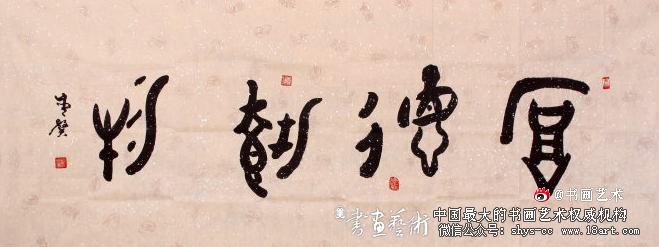 厚德載物
@书画艺术
書畫藝術
中国最大的书画艺术权威机构
微信公众号：shys-cc www.18art.com